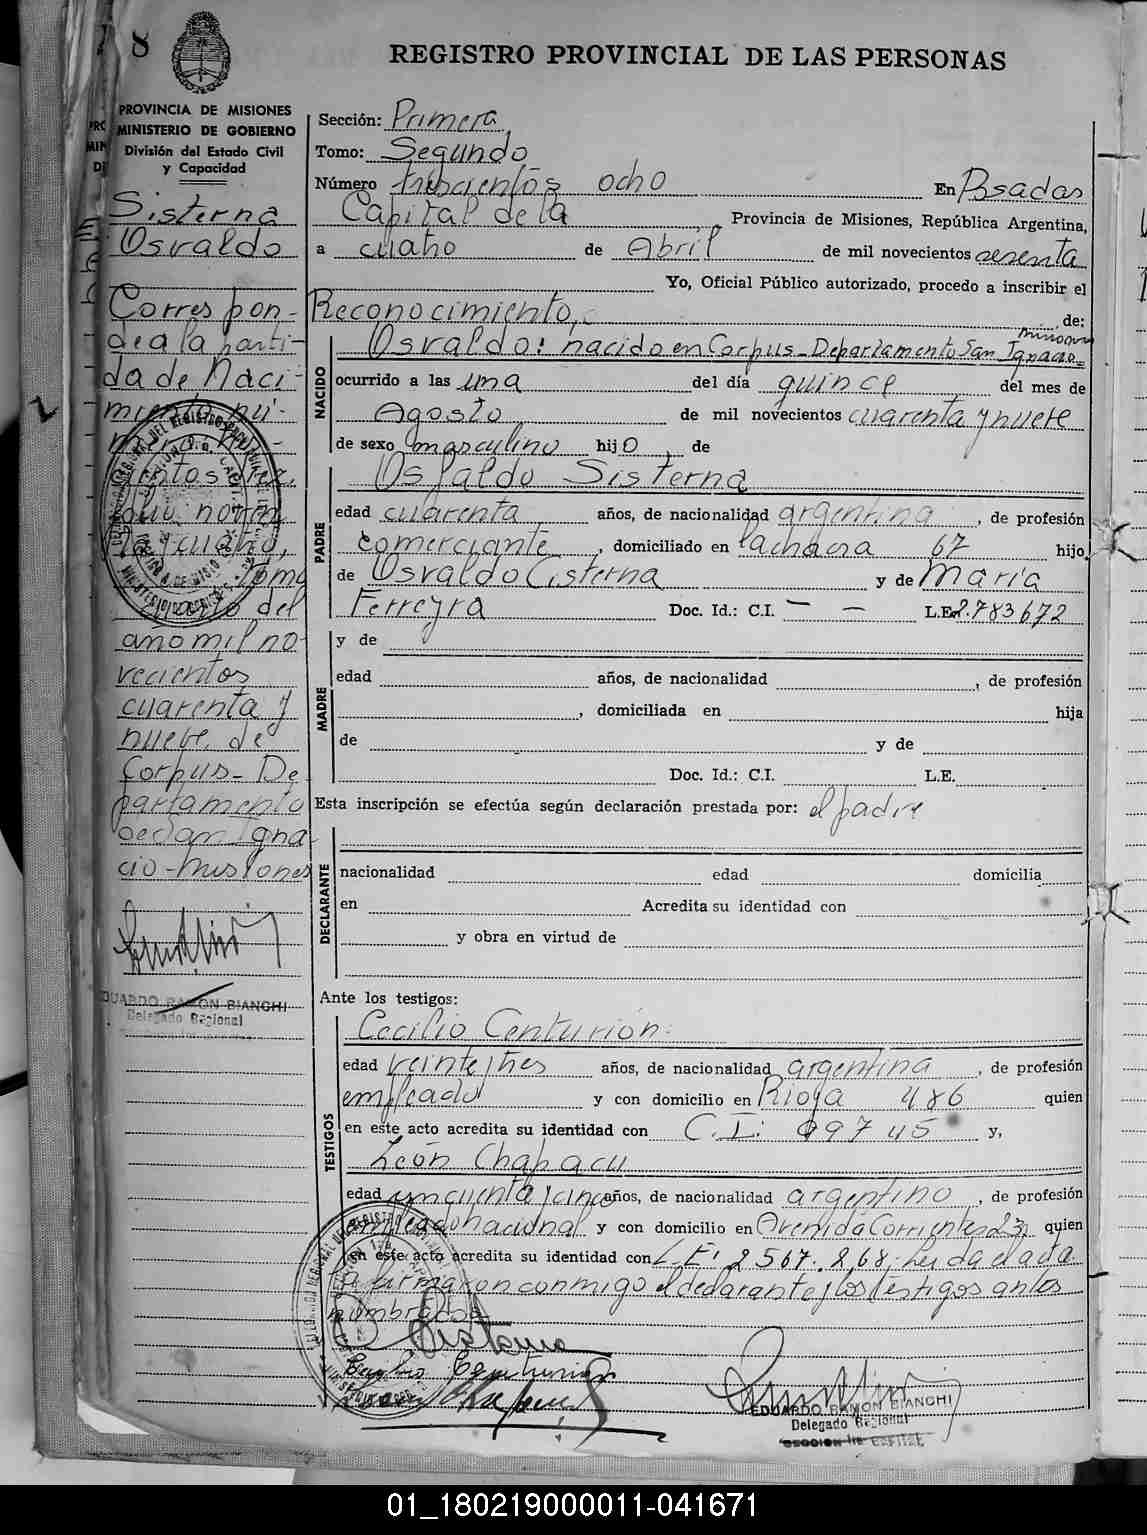 8
REGISTRO PROVINCIAL DE LAS PERSONAS
PROVINCIA DE MISIONES
MINISTERIO DE GOBIERNO
División del Estado Civil
y Capacidad
Sisterna
Osvaldo
Correspon-
de a la parti-
da de Naci-
miento nú-
cuatro,
Tomo
del
año mil no-
vecientos
cuarenta y
nueve, de
Corpus - De-
partamento
de San Igna-
cio - Misiones
EDUARDO RAMON BIANCHI
Delegado Regional
Sección: Primera
Tomo: Segundo
Número trescientos ocho En Posadas
Capital de la Provincia de Misiones, República Argentina,
a cuatro de Abril de mil novecientos sesenta
Yo, Oficial Público autorizado, procedo a inscribir el
Reconocimiento, de:
Misiones
Osvaldo: nacido en Corpus - Departamento San Ignacio
NACIDO
ocurrido a las una del día quince del mes de
Agosto de mil novecientos cuarenta y nueve
de sexo masculino hijo de
PADRE
Osfaldo Sisterna
edad cuarenta años, de nacionalidad argentina, de profesión
comerciante, domiciliado en la chacra 67 hijo
de Osvaldo Cisterna y de María
Ferreyra Doc. Id.: C.I. — — L.E. 2.783672
MADRE
y de
edad años, de nacionalidad , de profesión
, domiciliada en hija
de y de
Doc. Id.: C.I. L.E.
Esta inscripción se efectúa según declaración prestada por: el padre
DECLARANTE
nacionalidad edad domicilia
en Acredita su identidad con
y obra en virtud de
Ante los testigos:
TESTIGOS
Cecilio Centurión
edad veintitres años, de nacionalidad argentina, de profesión
empleado y con domicilio en Rioja 486 quien
en este acto acredita su identidad con C.I: 99745 y,
León Chapacu
edad cincuenta y cinco años, de nacionalidad argentino, de profesión
empleado nacional y con domicilio en Avenida Corrientes 23 quien
en este acto acredita su identidad con L.E: 2567.268; Leida el acta
la firmaron conmigo el declarante y los testigos antes
nombrados
Cecilio Centurion
EDUARDO RAMON BIANCHI
Delegado Regional
SECCION 1a. CAPITAL
01_180219000011-041671